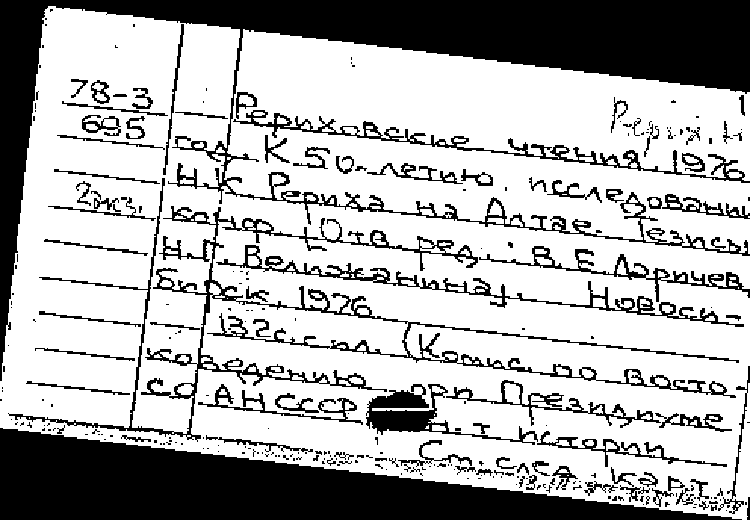 78-3
695
2 экз.
Рерих. Н
Рериховские чтения. 1976
год. К 50-летию исследований
Н.К. Рериха на Алтае. Тезисы
конф. [Отв. ред.: В.Е. Ларичев,
Н.Г. Велижанина]. Новоси-
бирск, 1976
132с. с ил. (Комис. по восто-
коведению при Президиуме
СО АН СССР. Ин-т истории,
См. след. карт.